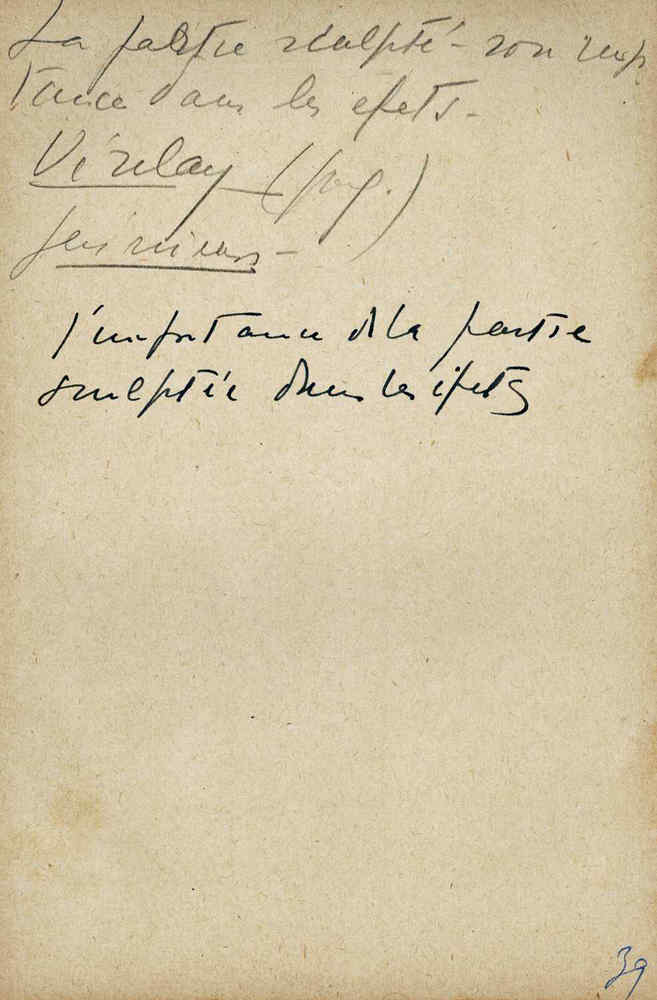 La partie sculpté - son imp
tance dans les éfets -
Vézelay (
l'importance de la partie
sculptée dans les éfets
39